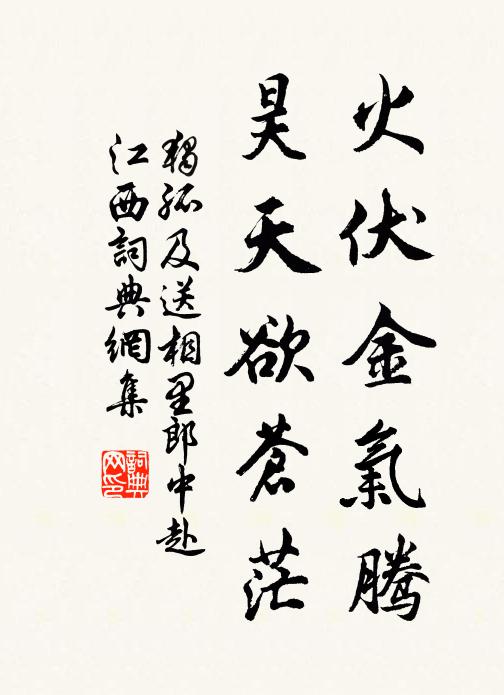 火伏金氣騰
昊天欲蒼茫
獨孤及送相里郎中赴
江西詞典網集
詞典
网印